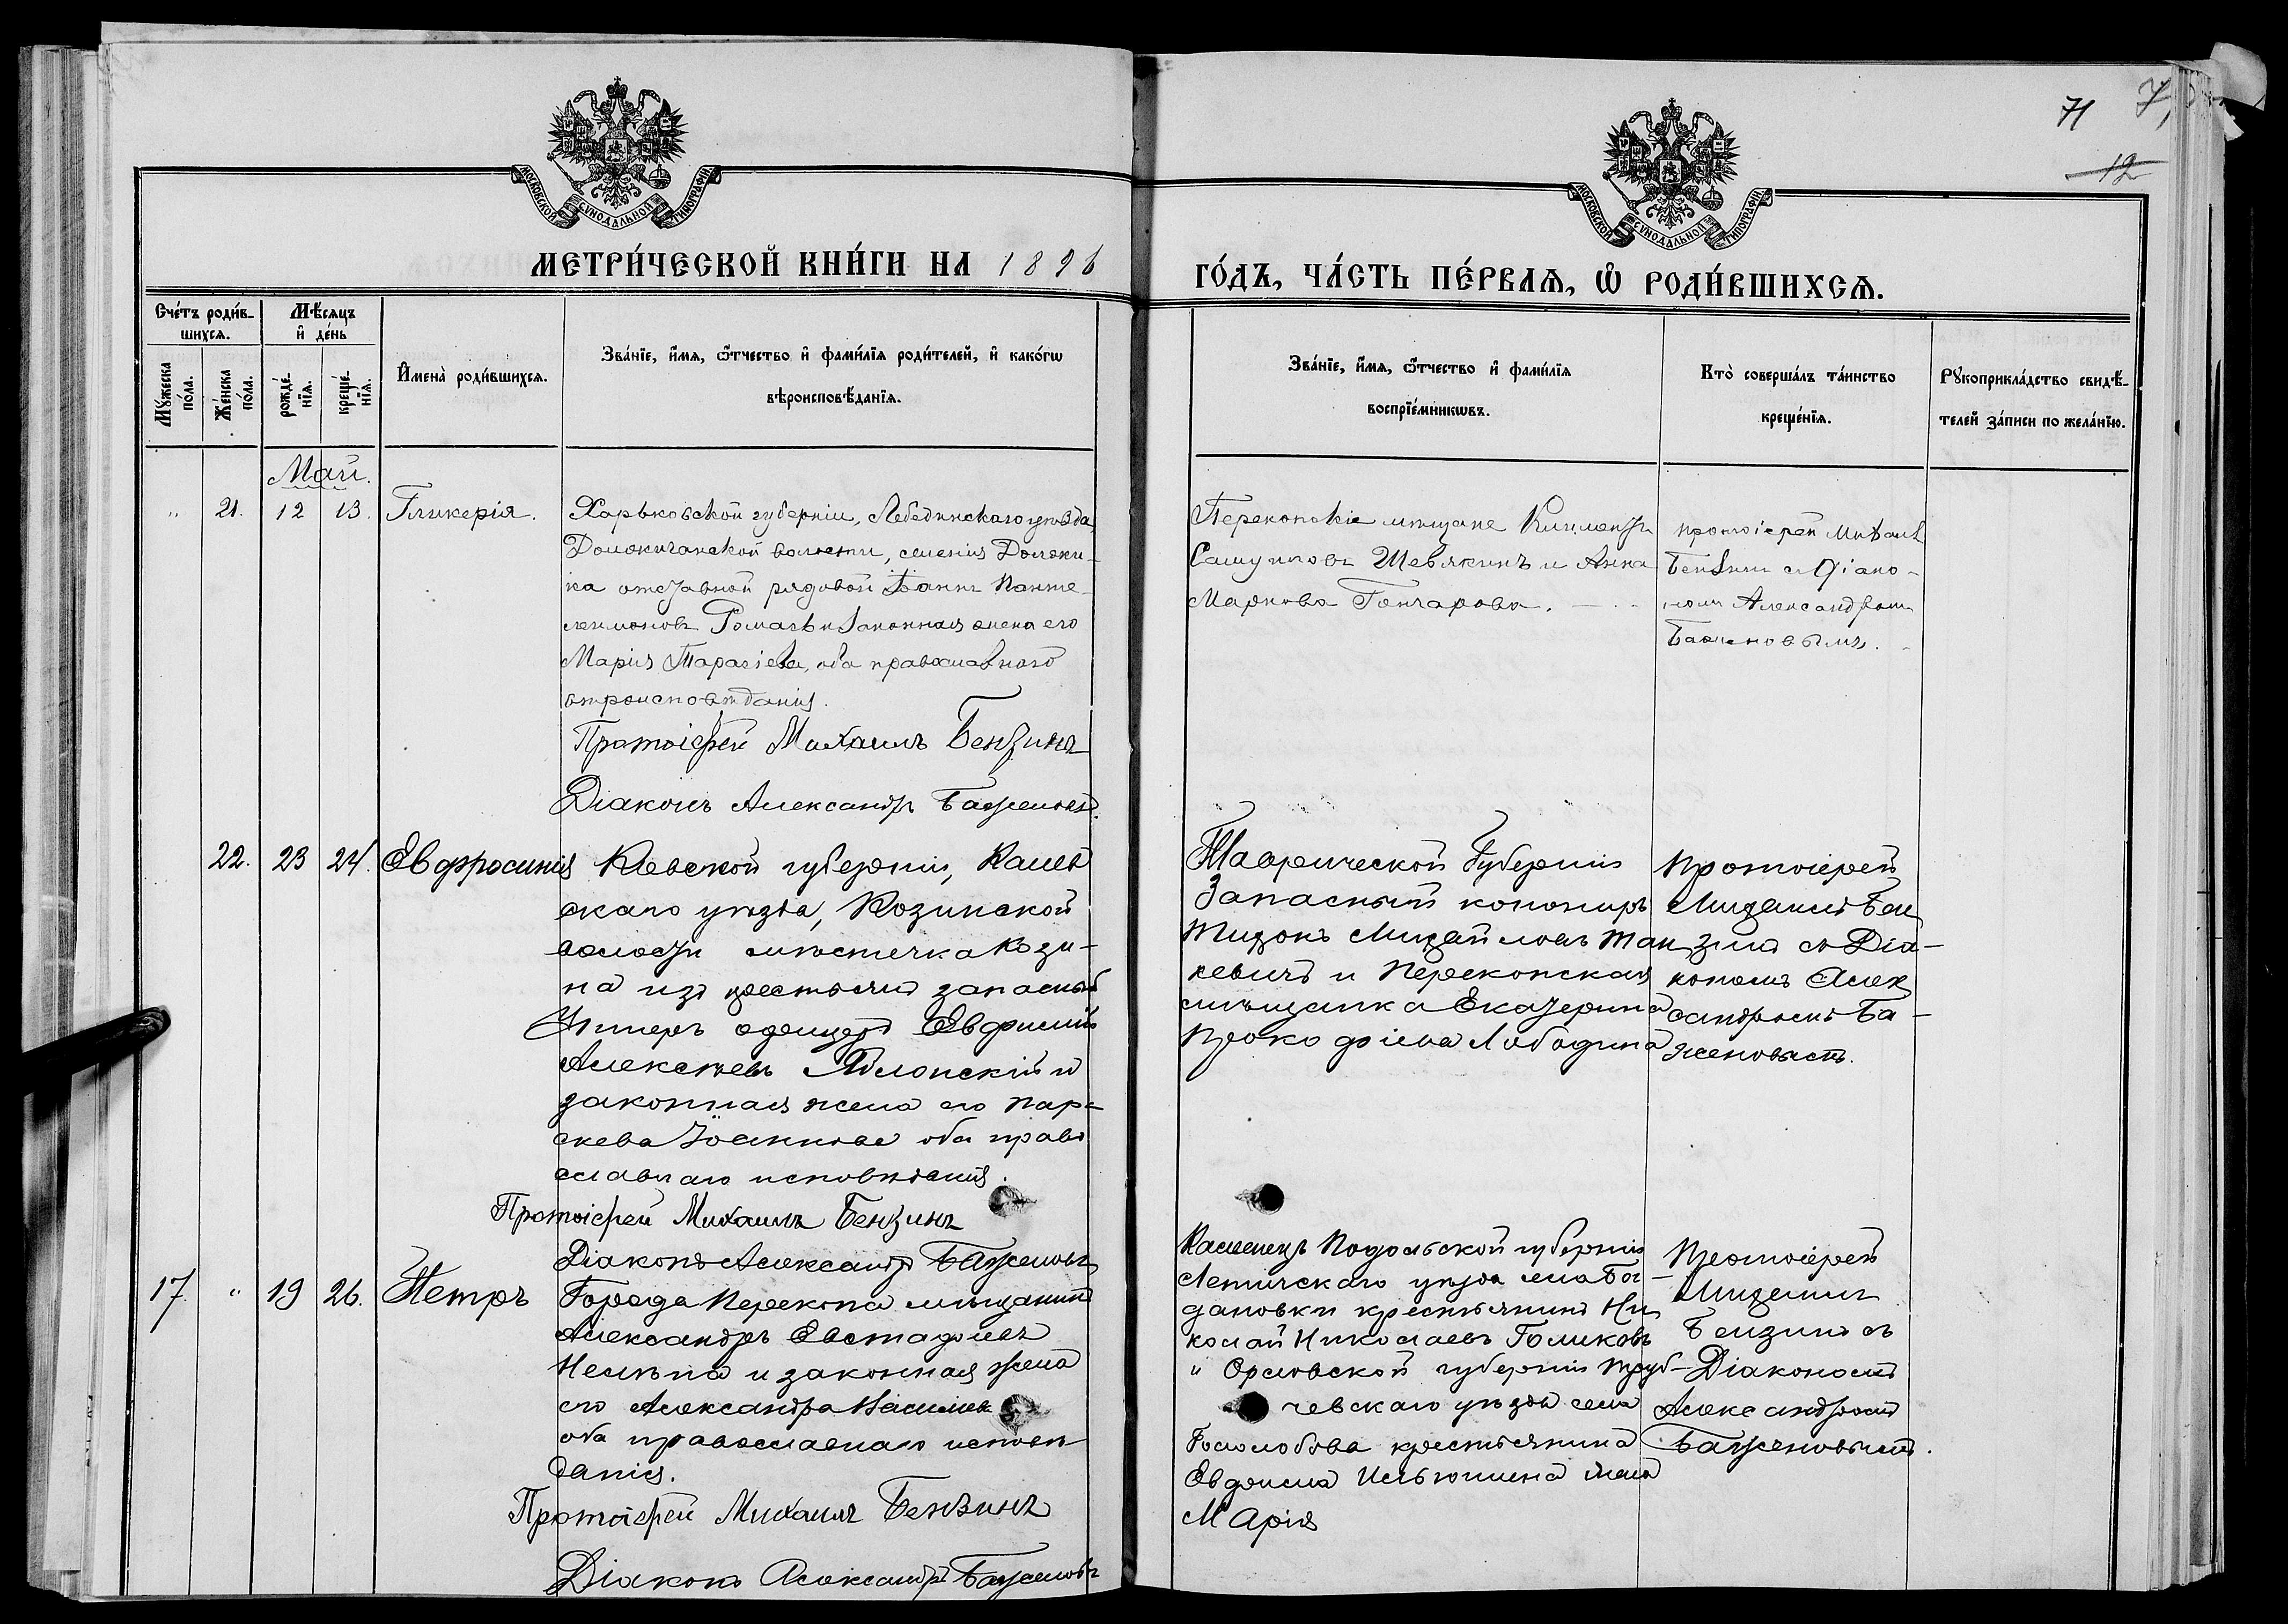 71
12
МОСКОВСКОЙ СУНОДАЛЬНОЙ ТИПОГРАФІИ
МОСКОВСКОЙ СУНОДАЛЬНОЙ ТИПОГРАФІИ
МЕТРИ́ЧЕСКОЙ КНИ́ГИ НА 1896
ГО́ДЪ, ЧА́СТЬ ПЕ́РВАЯ, Ѡ РОДИ́ВШИХСЯ.
Сче́тъ роди́в-
шихся.
Му́жеска по́ла.
Же́нска по́ла.
Мѣ́сяцъ
и де́нь
рожде́-
нїя.
креще́-
нїя.
Имена̀ роди́вшихся.
Зва́нїе, и́мя, ѻ҆́тчество и фами́лїя роди́телей, и како́гѡ
вѣроисповѣ́данїя.
Зва́нїе, и́мя, ѻ҆́тчество и фами́лїя
воспрїе́мникѡвъ.
Кто̀ соверша́лъ та́инство
креще́нїя.
Рꙋкоприкла́дство свидѣ́-
телей за́писи по жела́нїю.
Май.
" 21. 12 13. Гликерія.
Харьковской губерніи, Лебединскаго уѣзда,
волости, селенія
ка отставной рядовой Іоаннъ Панте-
леимоновъ и законная жена его
Марія, оба православнаго
вѣроисповѣданія.
Протоіерей Михаилъ Бензинъ
Діаконъ Александръ Баженовъ.
Перекопскіе мѣщане Климентъ
Шевякинъ и Анна
Маркова Гончарова.
протоіерей Михаилъ
Бензинъ съ діако-
номъ Александромъ
Баженовымъ.
22. 23 24. Евфросинія
Кіевской губерніи, Канев
скаго уѣзда, Козинской
волости мѣстечка Кози-
на изъ крестьянъ запасный
Унтеръ офицеръ Евфимій
Алексѣевъ Яблонскій и
законная жена его Пар-
скева Іоаннова оба право
славнаго исповѣданія.
Протоіерей Михаилъ Бензинъ
Діаконъ Александръ Баженовъ
Таврической Губерніи
Запасный канониръ
Тихонъ Михайловъ Тан
кевичъ и Перекопская
мѣщанка Екатерина
Прокофіева Лободина
Протоіерей
Михаилъ Бен
зинъ съ Діа-
кономъ Алек
сандромъ Ба-
женовымъ.
17. " 19 26. Петръ
Города Перекопа мѣщанинъ
Александръ Евстафіевъ
и законная жена
его Александра
оба православнаго исповѣ-
данія.
Протоіерей Михаилъ Бензинъ
Діаконъ Александръ Баженовъ
Каменецъ Подольской губерніи
Летичскаго уѣзда села Бог-
дановки крестьянинъ Ни
колай Николаевъ Голиковъ
" Орловской губерніи Труб-
чевскаго уѣзда села
крестьянина
Евдокима жена
Марія
Протоіерей
Михаилъ
Бензинъ съ
Діакономъ
Александромъ
Баженовымъ.